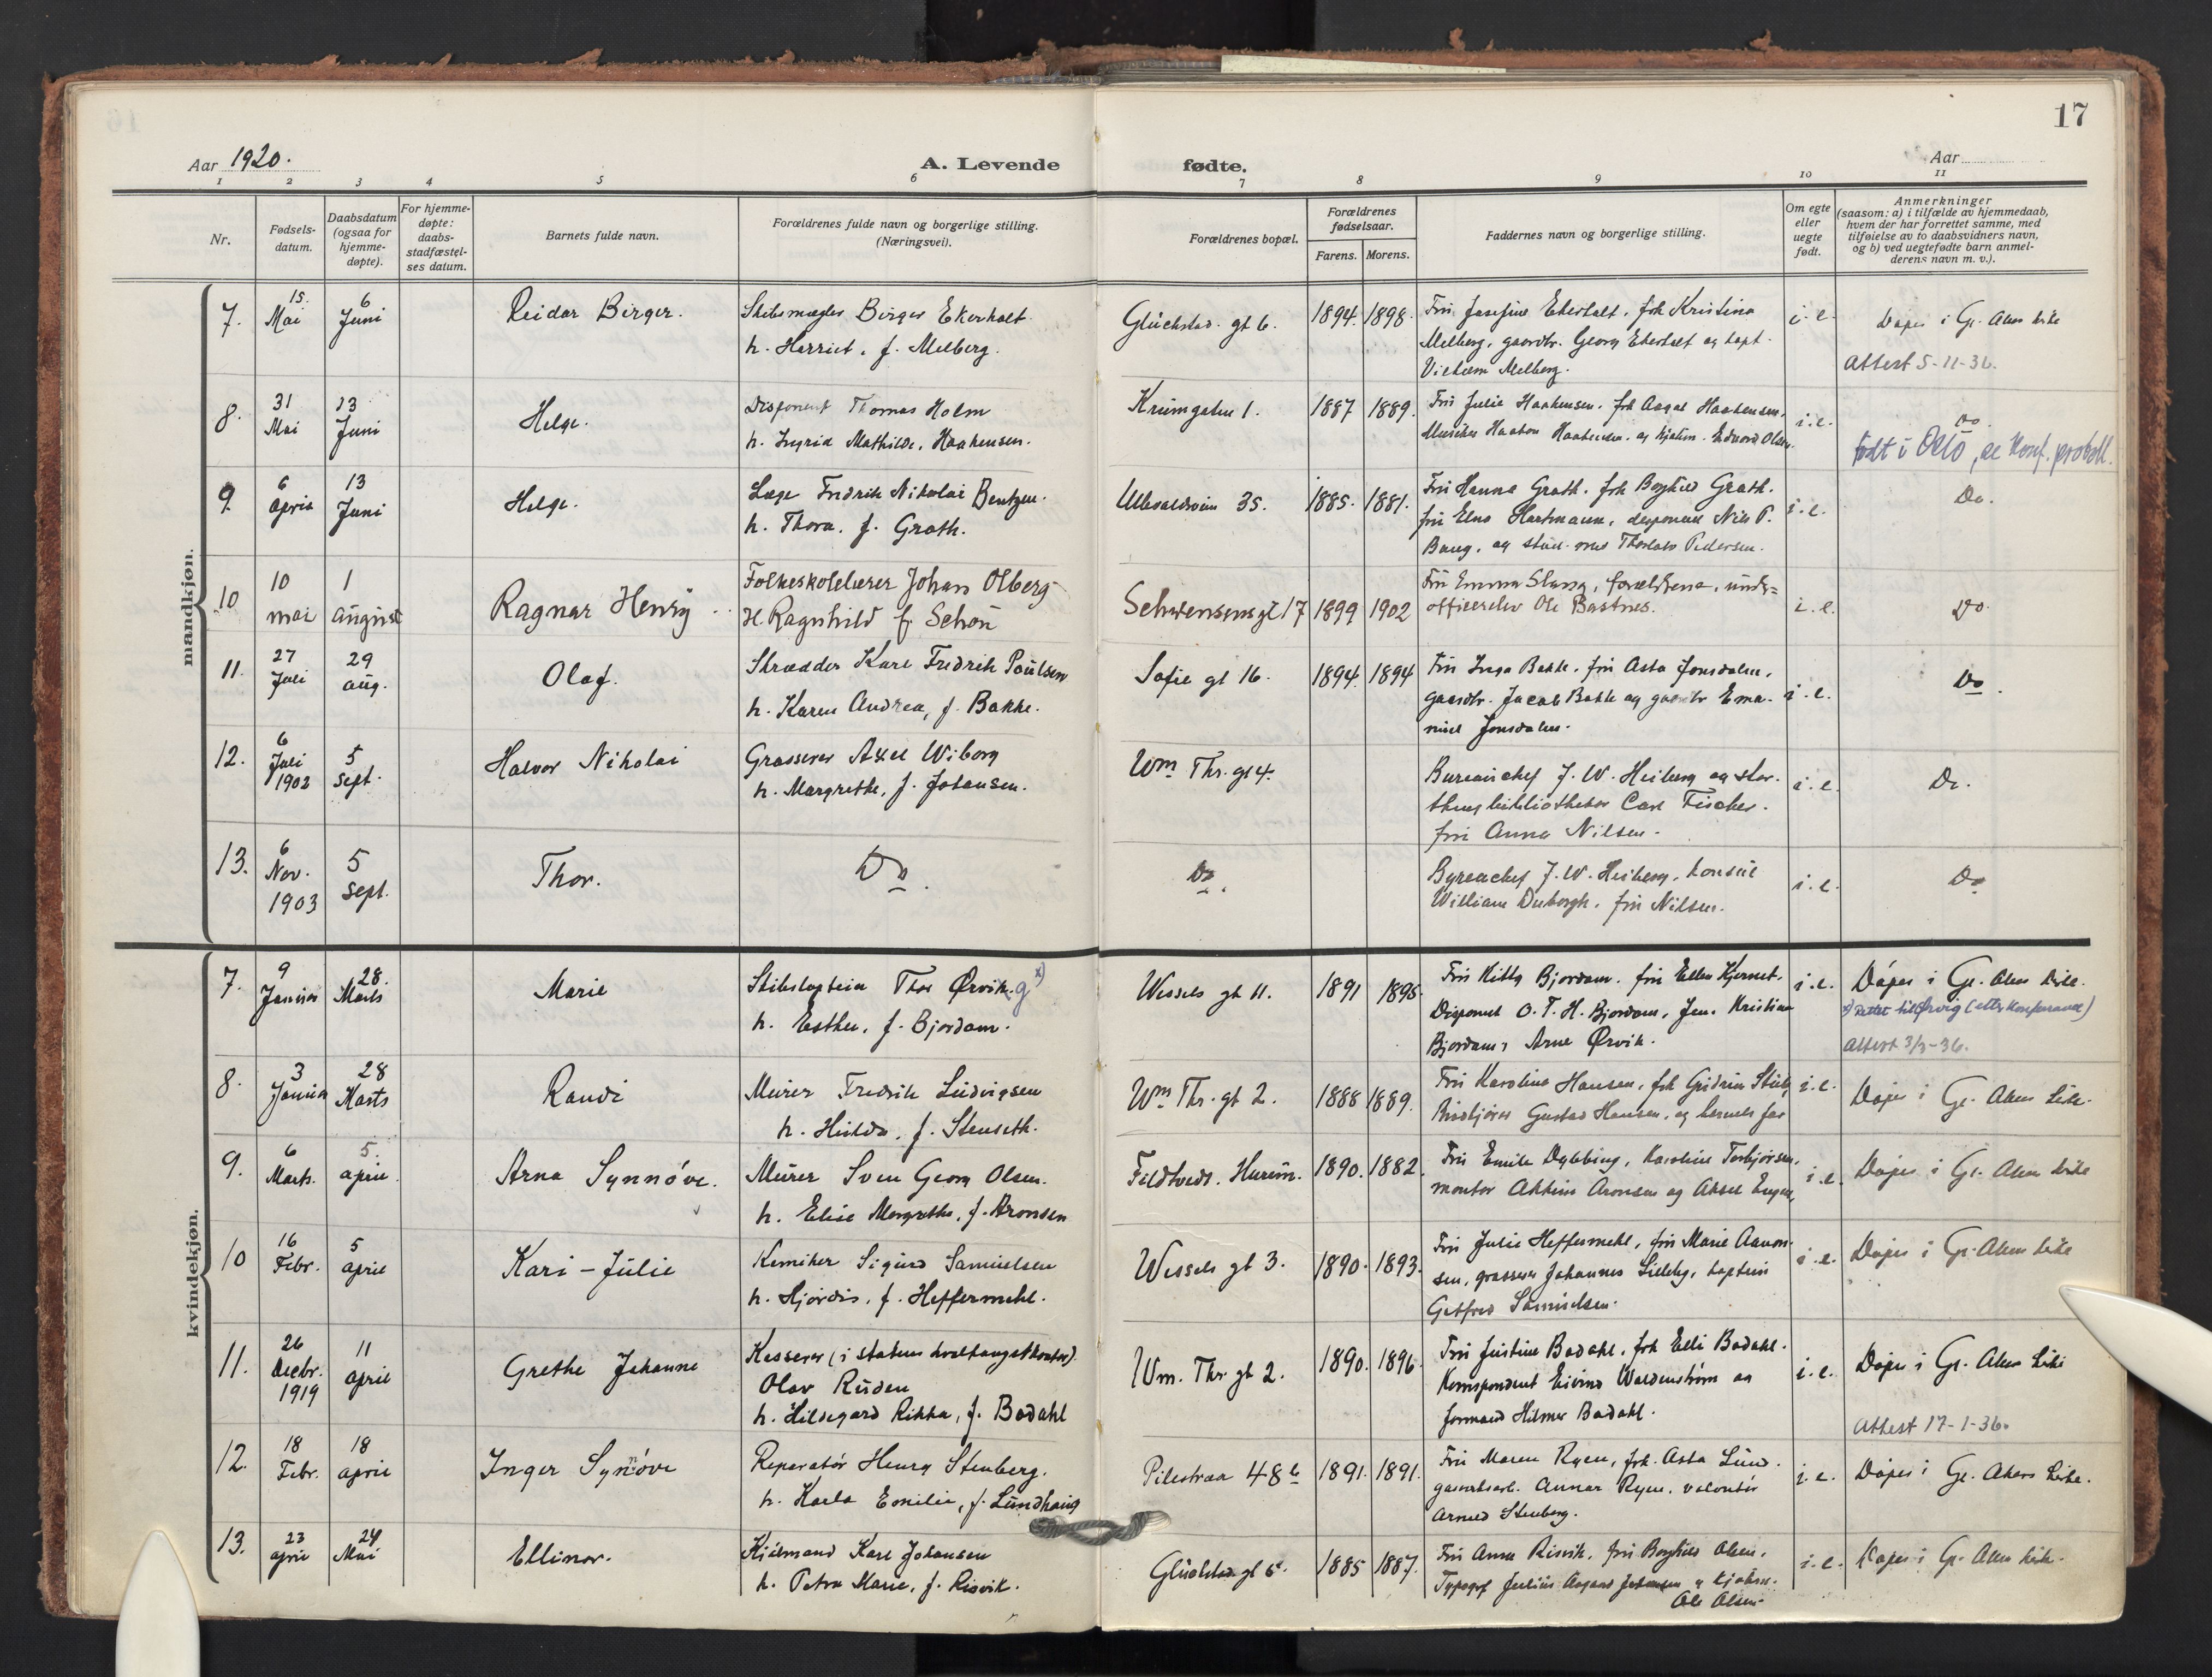 17
Aar 1920.
A. Levende
fødte.
Aar
1 2 3 4 5 6 7 8 9 10 11
Nr.
Fødsels-
datum.
Daabsdatum
(ogsaa for
hjemme-
døpte).
For hjemme-
døpte:
daabs-
stadfæstel-
ses datum.
Barnets fulde navn.
Forældrenes fulde navn og borgerlige stilling.
(Næringsvei).
Forældrenes bopæl.
Forældrenes
fødselsaar.
Farens. Morens.
Faddernes navn og borgerlige stilling.
Om egte
eller
uegte
født.
Anmerkninger
(saasom: a) i tilfælde av hjemmedaab,
hvem der har forrettet samme, med
tilføielse av to daabsvidners navn,
og b) ved uegtefødte barn anmel-
derens navn m. v.).
mandkjøn.
7. 15. Mai 6 Juni
Reidar Birger.
Skibsmægler Birger Ekerholt
h. Harriet, f. Melberg.
Glückstad. gt 6.
1894. 1898.
Fru Josefine Ekerholt, frk Kristina
Melberg, gaardbr. Georg Ekerholt og kapt.
Vilhelm Melberg.
i. e.
Døpt i Gl. Aker kirke
Attest 5-11-36.
8. 31 Mai 13 Juni
Helge.
Disponent Thomas Holm
h. Ingrid Mathilde, Haakensen.
Krumgaten 1.
1887 1889.
Fru Julie Haakensen, frk Aagot Haakensen,
Musiker Haakon Haakensen og Edvard Olsen.
i. e.
Do.
født i Oslo, se Konf. protokl.
9. 6 April 13 Juni
Helge.
Læge Fredrik Nikolai Bentzen.
h. Thora, f. Grath.
Ullevaldsveien 35.
1885. 1881.
Fru Hanna Grath. frk Borghild Grath.
fru Elna Hartmann, disponent Nils P.
Baug, og stud. med Pedersen.
i. e.
Do.
10 10 mai 1 august
Ragnar Henry
Folkeskolelærer Johan Olberg
H. Ragnhild f. Schøn
Schwensensgt 17
1899 1902
Fru Emma Slang, forældrene, under=
officerelev Ole Bastnes.
i. e.
Do.
11. 27 Juli 29 aug.
Olaf.
Skrædder Karl Fredrik Poulsen
h. Karen Andrea, f. Bakke.
Sofie gt 16.
1894. 1894
Fru Inga Bakke, fru Asta Jonsdalen,
gaardbr. Jacob Bakke og gaardbr Ema-
nuel Jonsdalen.
i. e.
Do.
12. 6 Juli 1902 5 Sept.
Halvor Nikolai
Grosserer Axel Wiborg
h. Margrethe, f. Johansen.
Wm Thr. gt 4.
Bureauchef J. W. Heiberg og stor-
thingsbibliothekar Carl Fischer.
fru Anna Nilsen.
i. e.
Do.
13. 6 Nov. 1903 5 Sept.
Thor.
Do.
Do.
Byreachef J. W. Heiberg, konsul
William Duborgh, fru Nilsen.
i. e.
Do
kvindekjøn.
7. 9 Januar 28. Marts
Marie
Skibskaptein Thor Ørvik. g x)
h. Esther, f. Bjordam.
Wessels gt 11.
1891 1895.
Fru Kitty Bjordam. fru Ellen Kjernet.
Disponent O. T. H. Bjordam, Jens Kristian
Bjordam, Arne Ørvik.
i. e.
Døpt i Gl. Aker kirke.
x) Rettet til Ørvig (etter konferanse)
Attest 3/3-36.
8. 3 Januar 28 Marts
Randi
Murer Fredrik Ludvigsen
h. Hilda, f. Stenseth.
Wm Thr. gt 2.
1888 1889.
Fru Karoline Hansen, frk Gudrun
Gustav Hansen, og barnets far
i. e.
Døpt i Gl. Aker kirke.
9. 6 Marts. 5. april.
Arna Synnöve.
Murer Sven Georg Olsen.
h. Elise Margrethe, f. Aronsen
1890. 1882.
Fru Emilie Karoline Torbjørnsen,
montør Aronsen og Aksel
i. e.
Døpt i Gl. Aker kirke
10 16 Febr. 5 april
Kari - Julie
Kemiker Sigurd Samuelsen
h. Hjördis, f. Heffermehl.
Wessels gt 3.
1890. 1893.
Fru Julie Heffermehl, fru Marie Aamon-
sen, grosserer Johannes Lilleby, kaptein
Gotfred Samuelsen.
i. e.
Døpt i Gl. Aker kirke
11. 26 Decbr. 1919 11 april
Grethe Johanne
Kasserer (i statens kvalfangstkontor)
Olav Ruden
h. Hildegard Rikka, f. Badahl
Wm. Thr. gt 2.
1890. 1896.
Fru Justine Badahl, frk Elli Badahl.
Korrespondent Eivind Waldenstrøm og
formand Hilmer Badahl.
i. e.
Døpt i Gl. Aker kirke
Attest 17-1-36.
12. 18 Febr. 18 april
Inger Synnöve
Reparatör Henry Stenberg.
h. Karla Emilie, f. Lundhaug
Pilestræ 48 b
1891. 1891.
Fru Maren Ryen, frk. Asta Lund.
Annar Ryen, volontør
Arnold Stenberg.
i. e.
Døpt i Gl. Akers kirke.
13. 23 april 24 Mai
Ellinor.
Karl Johansen
h. Petra Marie, f. Risvik.
Glückstad. gt 6
1885 1887.
Fru Anna Risvik, fru Borghild Olsen,
Typograf Julius Aagard Johansen og
Ole Olsen
i. e.
Døpt i Gl. Aker kirke.